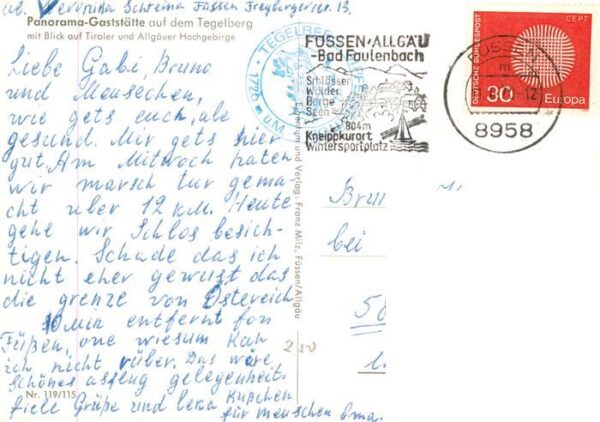 Ab. Veronika Schreina Füssen Freyburgerstr. 13,
Panorama-Gaststätte auf dem Tegelberg
mit Blick auf Tiroler und Allgäuer Hochgebirge
Liebe Gabi, Bruno
und Mensechen,
wie gets euch, ale
gesund. Mir gets hier
gut, Am Mitwoch haten
wir marsch tur gema-
cht über 12 k.M. Heute
gehe wir Schlos besich-
tigen. Schade das ich
nicht eher gewust das
die grenze von Östereich
10 Min entfernt fon
Füßen, one wiesum kan
ich nicht rüber. Das wäre
schönes asflug gelegenheit.
Fiele Grüße und
für menschen Oma.
Nr. 119/115
TEGELBERG
1720
ü.M.
FÜSSEN·ALLGÄU
-Bad Faulenbach
Schlösser
Wälder
Berge
Seen
804m
Kneippkurort
Wintersportplatz
FÜSSEN
-12
8958
DEUTSCHE BUNDESPOST
CEPT
30
Europa
und Verlag: Franz Milz, Füssen/Allgäu
bei
250